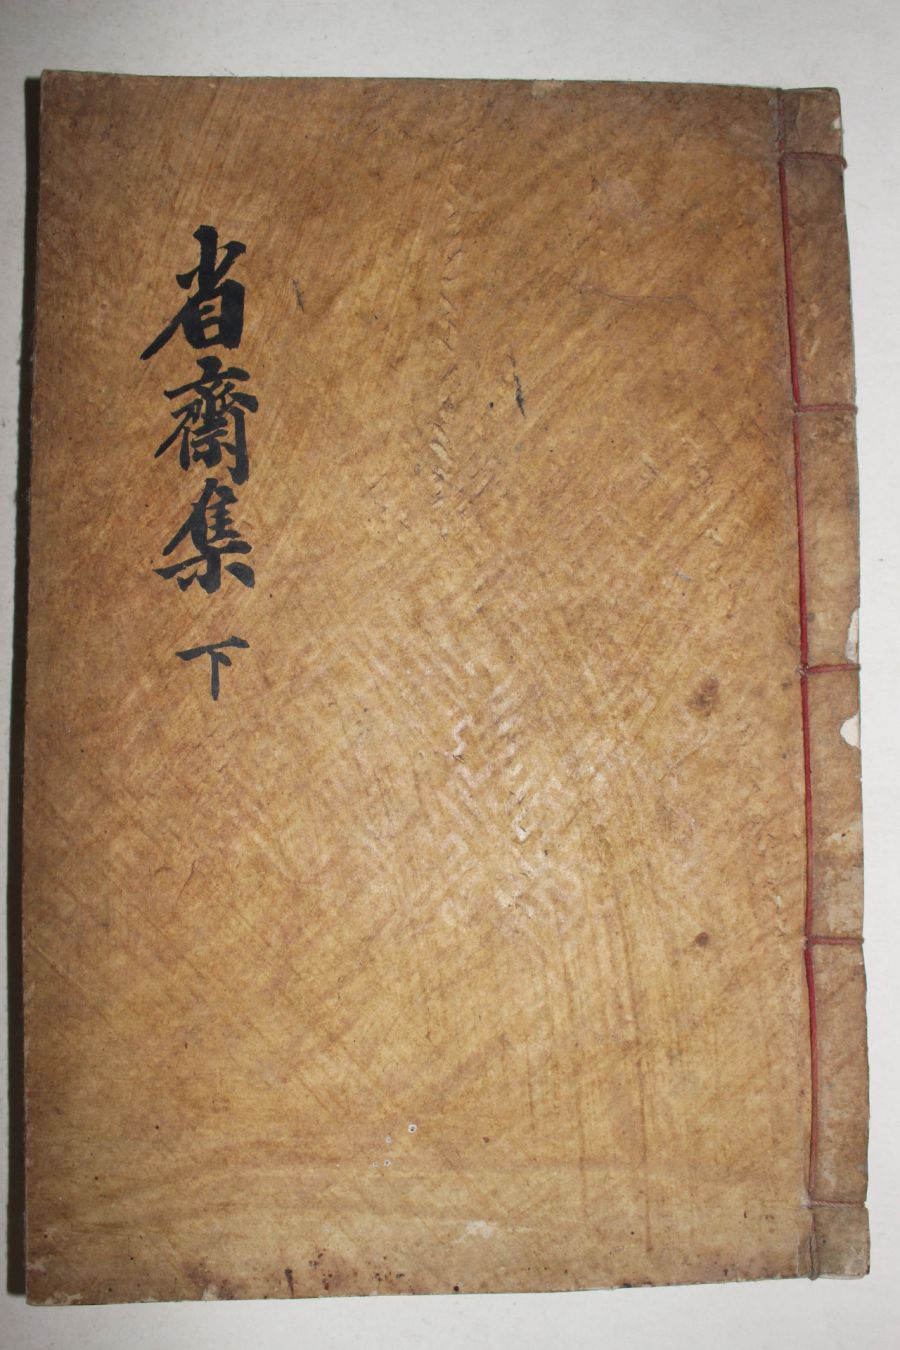 省齋集 下